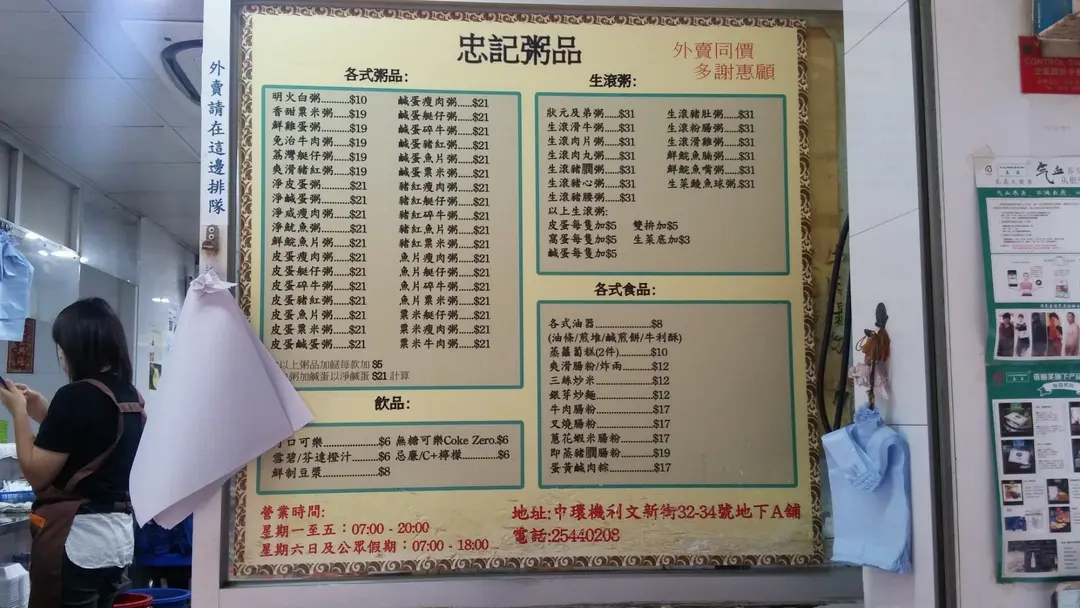 忠記粥品
外賣同價
多謝惠顧
外賣請在這邊排隊
各式粥品:
明火白粥..........$10
香甜粟米粥......$19
鮮雞蛋粥..........$19
免治牛肉粥......$19
荔灣艇仔粥......$19
爽滑豬紅粥......$19
淨皮蛋粥..........$21
淨鹹蛋粥..........$21
淨咸瘦肉粥......$21
淨魷魚粥..........$21
鮮鯇魚片粥......$21
皮蛋瘦肉粥......$21
皮蛋艇仔粥......$21
皮蛋碎牛粥......$21
皮蛋豬紅粥......$21
皮蛋魚片粥......$21
皮蛋粟米粥......$21
皮蛋鹹蛋粥......$21
鹹蛋瘦肉粥.....$21
鹹蛋艇仔粥.....$21
鹹蛋碎牛粥.....$21
鹹蛋豬紅粥.....$21
鹹蛋魚片粥.....$21
鹹蛋粟米粥.....$21
豬紅瘦肉粥.....$21
豬紅艇仔粥.....$21
豬紅碎牛粥.....$21
豬紅魚片粥.....$21
豬紅粟米粥.....$21
魚片瘦肉粥.....$21
魚片艇仔粥.....$21
魚片碎牛粥.....$21
魚片粟米粥.....$21
粟米艇仔粥.....$21
粟米瘦肉粥.....$21
粟米牛肉粥.....$21
以上粥品加餸每款加 $5
粥加鹹蛋以淨鹹蛋 $21 計算
飲品:
口可樂..................$6
雪碧/芬達橙汁.......$6
鮮制豆漿................$8
無糖可樂Coke Zero.$6
忌廉/C+檸檬...........$6
生滾粥:
狀元及弟粥.....$31
生滾滑牛粥.....$31
生滾肉片粥.....$31
生滾肉丸粥.....$31
生滾豬膶粥.....$31
生滾豬心粥.....$31
生滾豬腰粥.....$31
生滾豬肚粥.....$31
生滾粉腸粥.....$31
生滾滑雞粥.....$31
鮮鯇魚腩粥.....$31
鮮鯇魚嘴粥.....$31
生菜鯪魚球粥.$31
以上生滾粥:
皮蛋每隻加$5 雙拚加$5
窩蛋每隻加$5 生菜底加$3
鹹蛋每隻加$5
各式食品:
各式油器..............$8
(油條/煎堆/鹹煎餅/牛利酥)
蒸蘿蔔糕(2件).........$10
爽滑腸粉/炸雨.........$12
三絲炒米................$12
銀芽炒麵................$12
牛肉腸粉................$17
叉燒腸粉................$17
蔥花蝦米腸粉.........$17
即蒸豬膶腸粉.........$19
蛋黃鹹肉粽............$17
營業時間:
星期一至五：07:00 - 20:00
星期六日及公眾假期：07:00 - 18:00
地址:中環機利文新街32-34號地下A舖
電話:25440208
气血